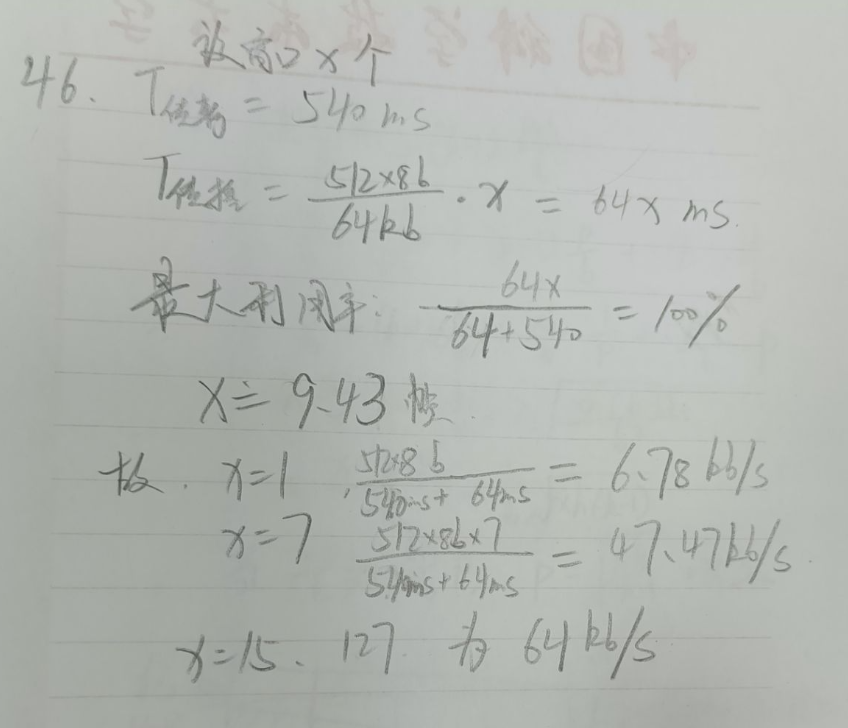 设窗口 x 个
46. T传输 = 540 ms
T传播 = 512×8b / 64kb · x = 64x ms.
最大利用率: 64x / 64+540 = 100%
x≐ 9.43 帧.
故. x=1 , 512×8 b / 540ms + 64ms = 6.78 kb/s
x=7 512×8b×7 / 540ms+64ms = 47.47kb/s.
x=15、127. 为 64 kb/s